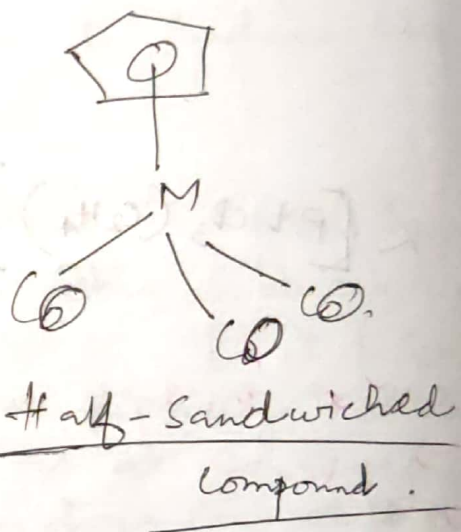 M
CO
CO
CO.
Half-Sandwiched
Compound.